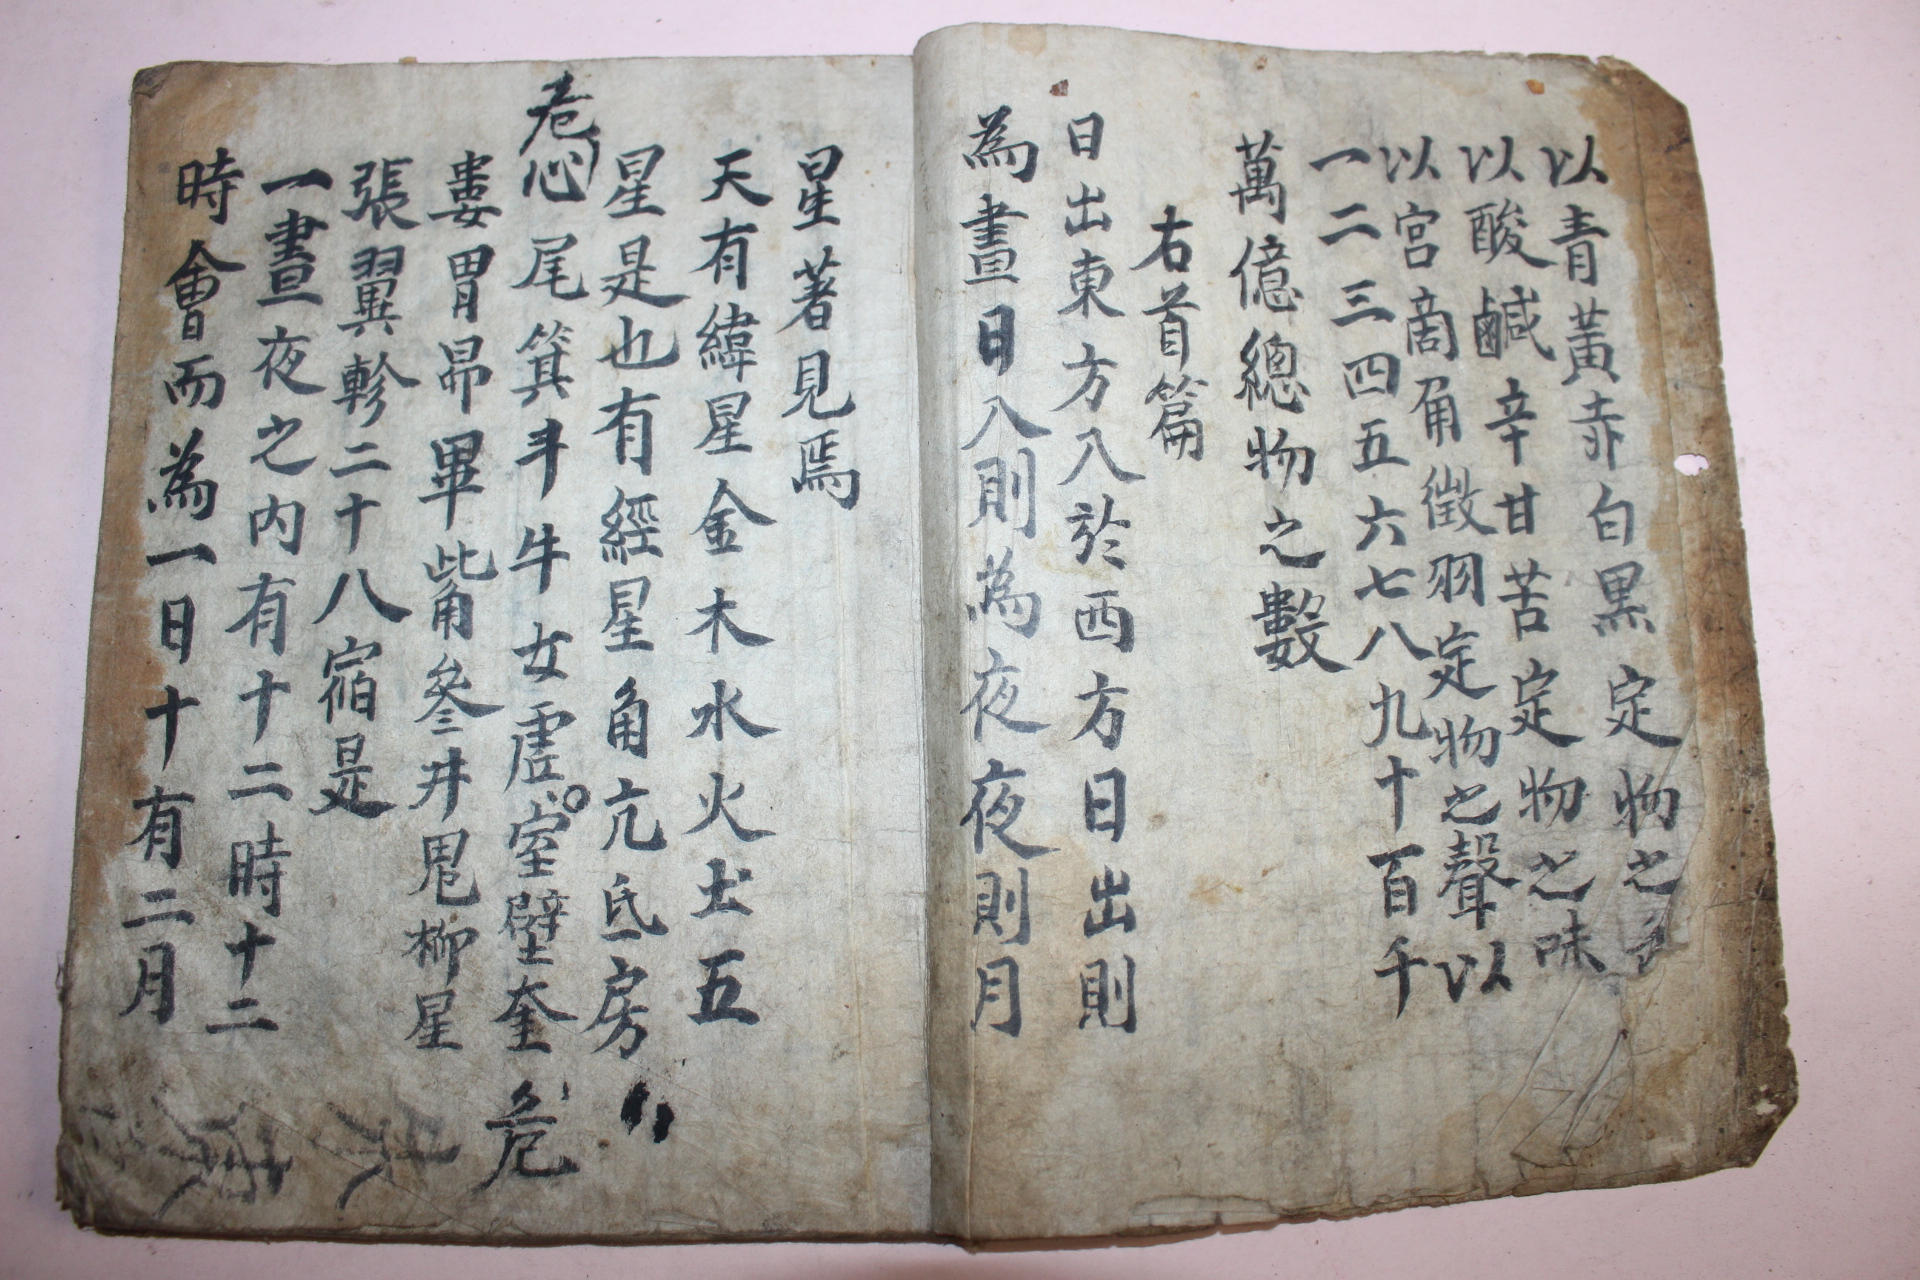 以青黃赤白黑定物之色
以酸鹹辛甘苦定物之味
以宮商角徵羽定物之聲以
一二三四五六七八九十百千
萬億總物之數
右首篇
日出東方入於西方日出則
為晝日入則為夜夜則月
星著見焉
天有緯星金木水火土五
星是也有經星角亢氐房
心尾箕斗牛女虛室壁奎
危
危
婁胃昴畢觜參井鬼柳星
張翼軫二十八宿是
一晝夜之內有十二時十二
時會而為一日十有二月